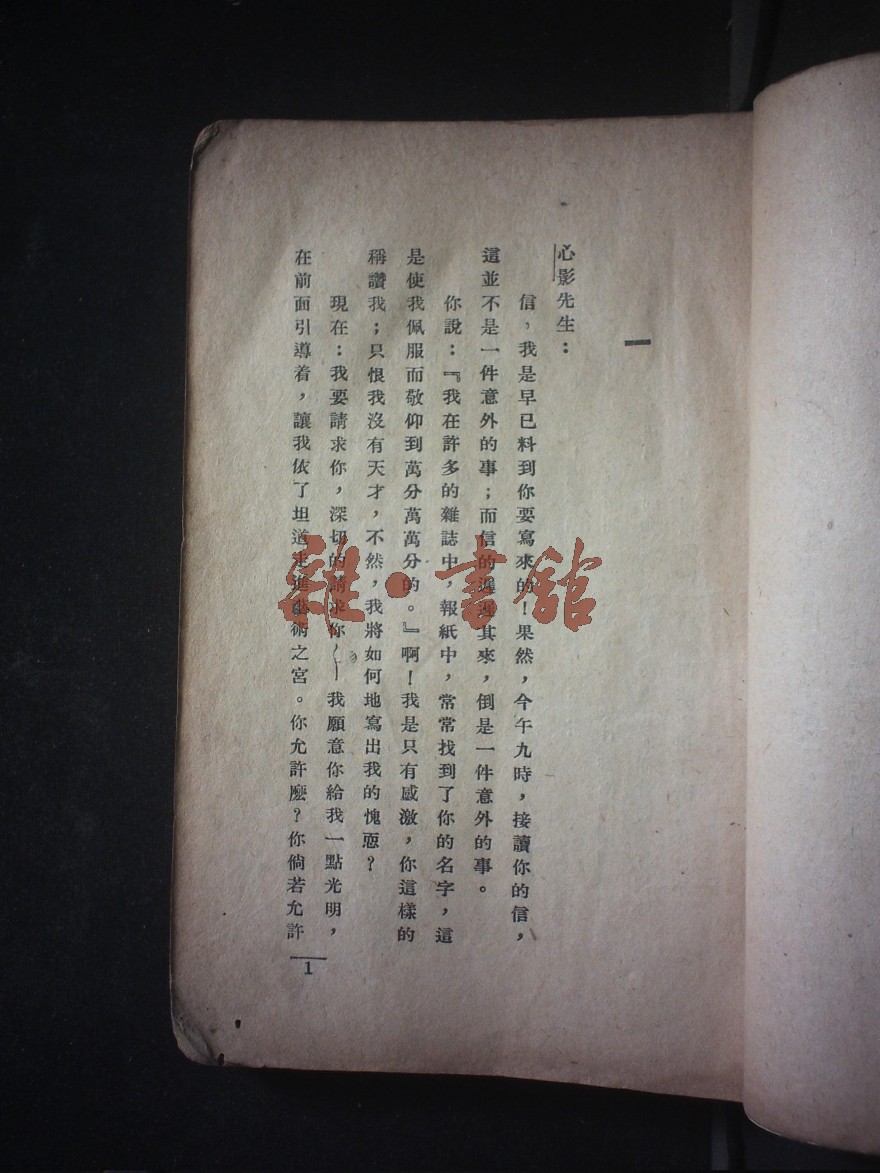 一
心影先生：
信，我是早已料到你要寫來的！果然，今午九時，接讀你的信，
這並不是一件意外的事；而信的遲遲其來，倒是一件意外的事。
你說：『我在許多的雜誌中，報紙中，常常找到了你的名字，這
是使我佩服而敬仰到萬分萬萬分的。』啊！我是只有感激，你這樣的
稱讚我；只恨我沒有天才，不然，我將如何地寫出我的愧恧？
現在：我要請求你，深切的請求你——我願意你給我一點光明，
在前面引導着，讓我依了坦道走進藝術之宮。你允許麼？你倘若允許
1
雜·書館